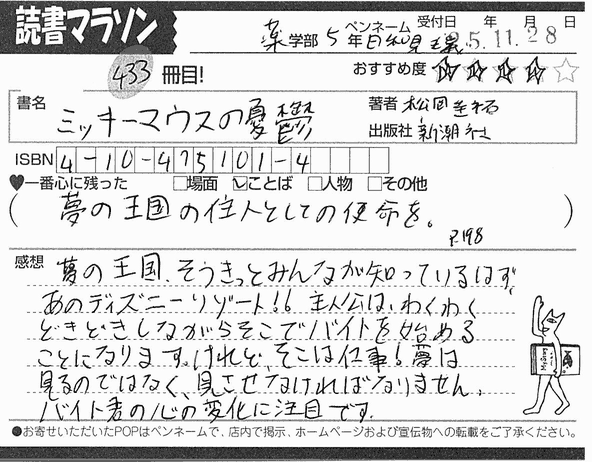 読書マラソン
薬学部 5年 ペンネーム 日和見 受付日 5.11.28 年 月 日
433冊目! おすすめ度 ★★★★☆
書名 ミッキーマウスの憂鬱
著者 松岡圭祐
出版社 新潮社
ISBN 4-10-475101-4
♥一番心に残った □場面 ☑ことば □人物 □その他
(夢の王国の住人としての使命を。)
P.198
感想 夢の王国、そうきっとみんなが知っているはず、
あのディズニーリゾート!! 主人公は、わくわく
どきどきしながらそこでバイトを始める
ことになります。けれど、そこは仕事!夢は
見るのではなく、見させなければなりません。
バイト君の心の変化に注目です。
●お寄せいただいたPOPはペンネームで、店内で掲示、ホームページおよび宣伝物への転載をご了承ください。